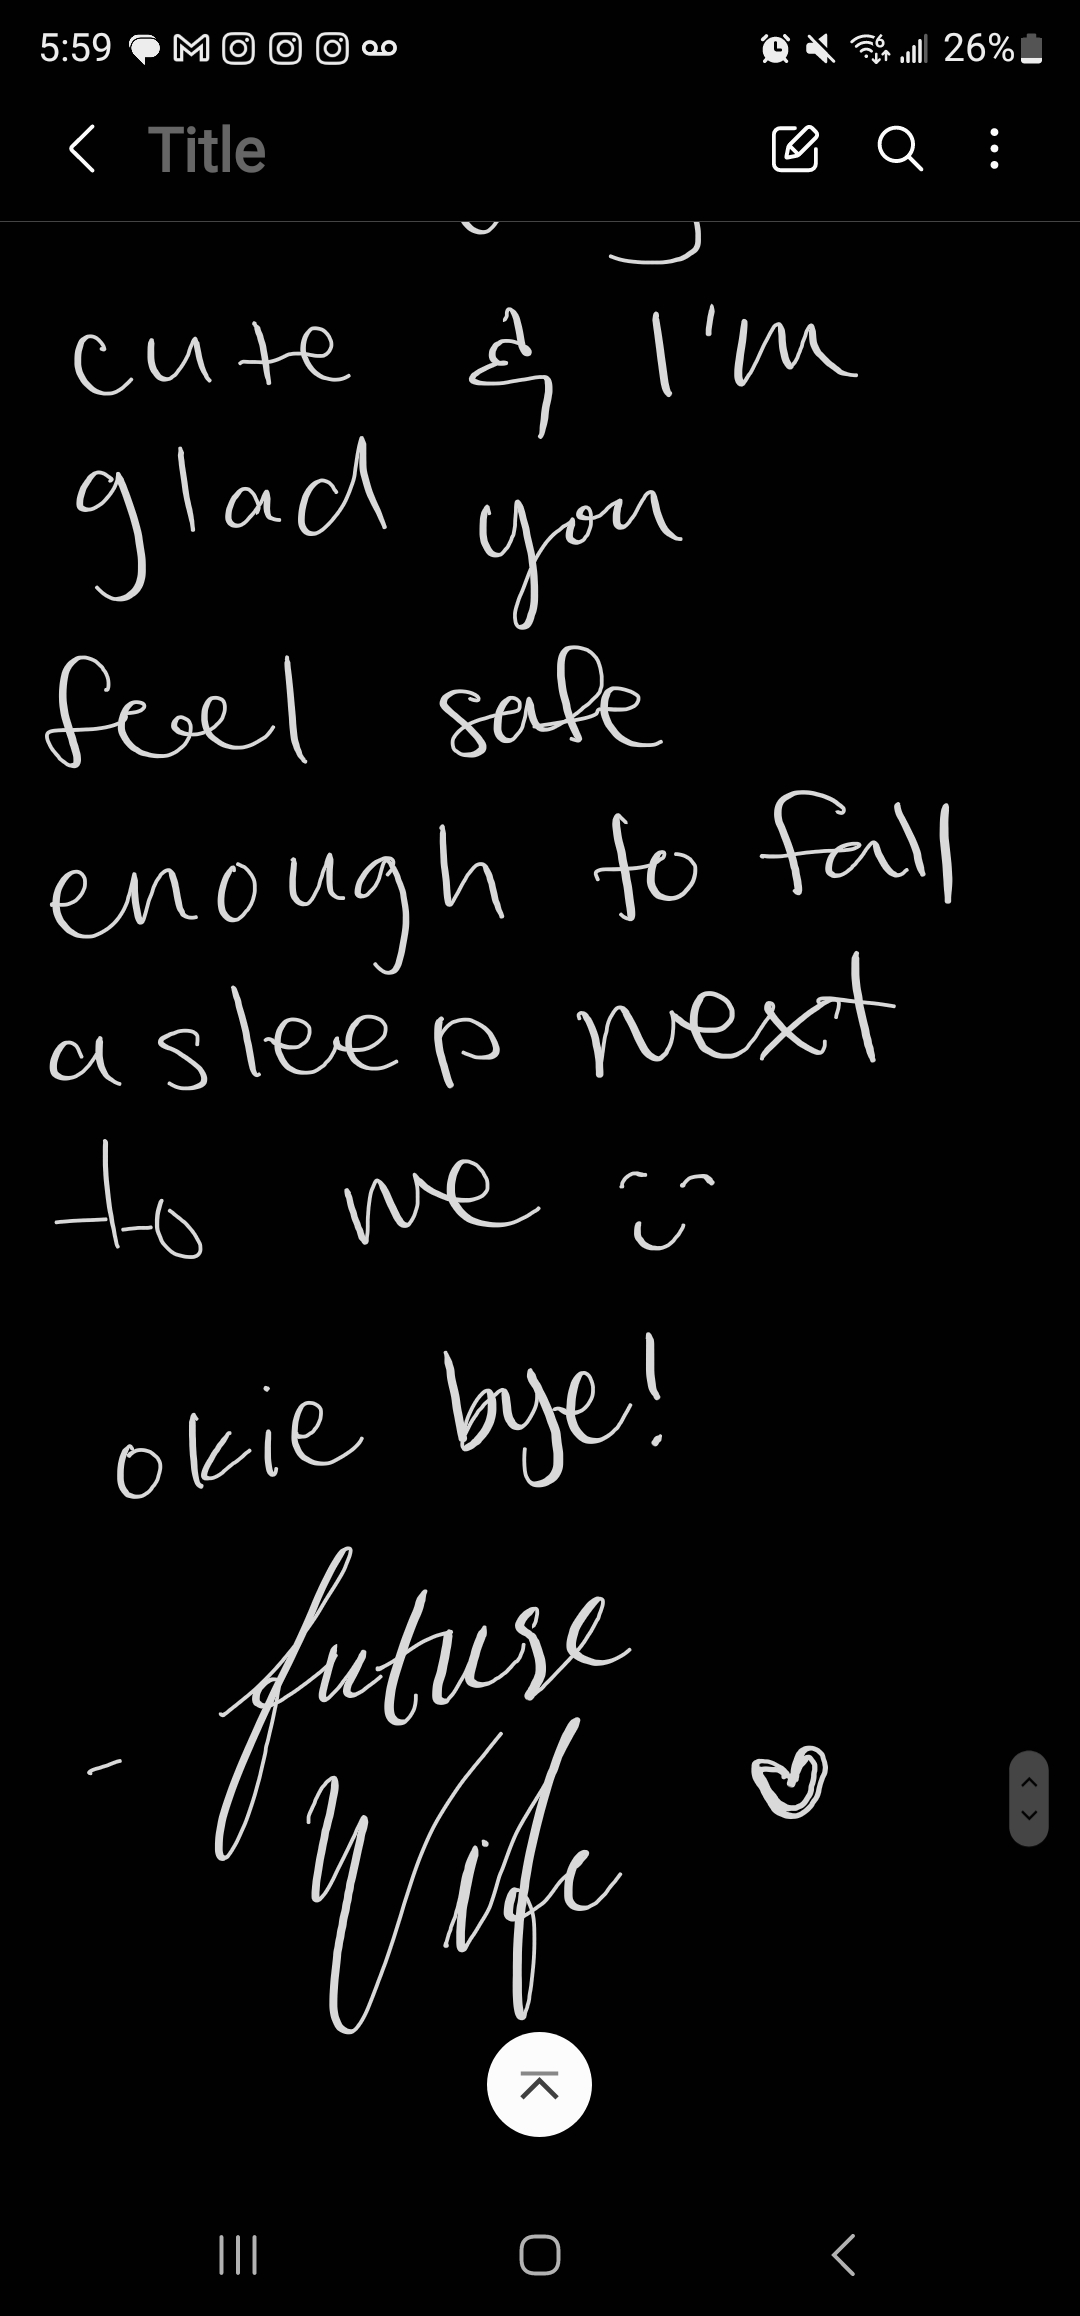 5:59 26%
Title
cute & I'm
glad you
feel safe
enough to fall
asleep next
to me
okie bye!
- future
Wife